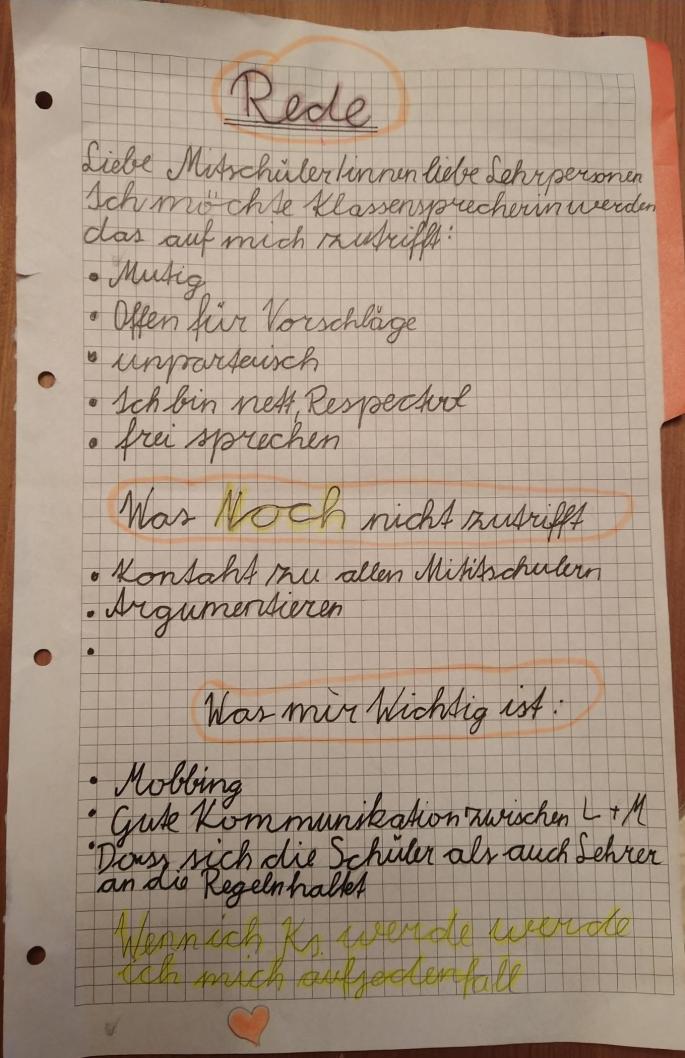 Rede
Liebe Mitschüler/innen liebe Lehrpersonen
Ich möchte Klassensprecherin werden
das auf mich zutrifft:
• Mutig
• Offen für Vorschläge
• unparteiisch
• Ich bin nett, Respectvol
• frei sprechen
Was Noch nicht zutrifft
• Kontakt zu allen Mititschulern
• Argumentieren
•
Was mir Wichtig ist:
• Mobbing
• Gute Kommunikation zwischen L + M
• Dass sich die Schüler als auch Lehrer
an die Regeln haltet
Wenn ich Ks. werde werde
ich mich aufjedenfall